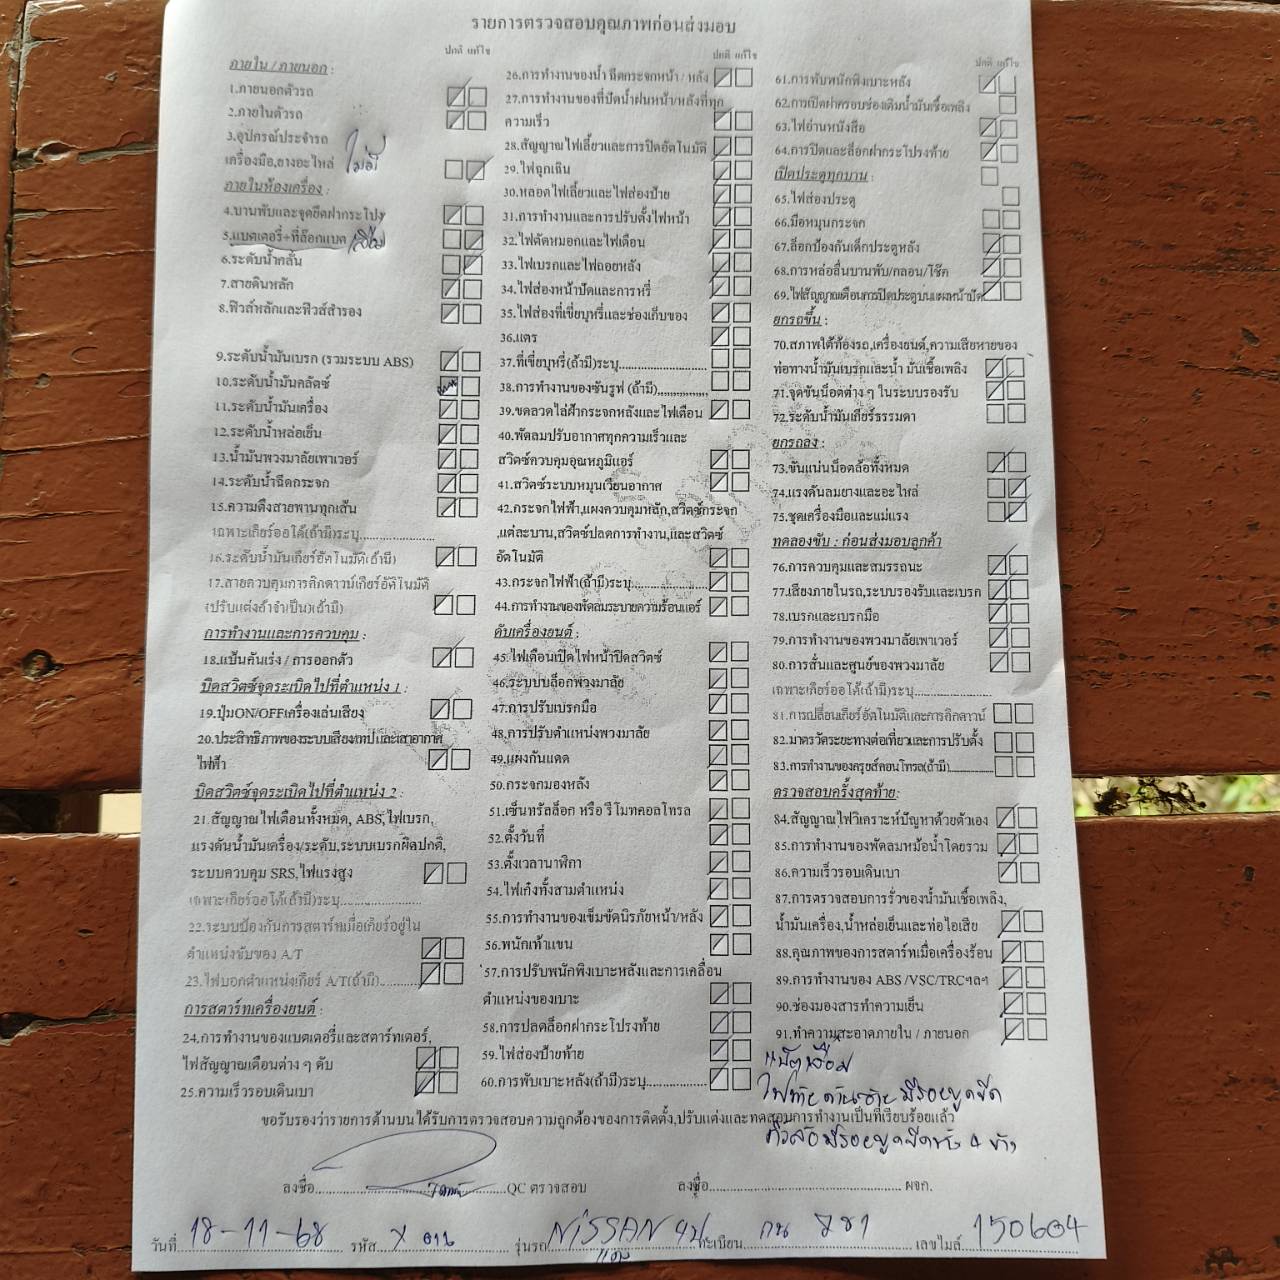 รายการตรวจสอบคุณภาพก่อนส่งมอบ
ปกติ แก้ไข
ภายใน / ภายนอก :
1.ภายนอกตัวรถ
2.ภายในตัวรถ
3.อุปกรณ์ประจำรถ
เครื่องมือ,ยางอะไหล่ ไม่มี
ภายในห้องเครื่อง :
4.บานพับและจุดยึดฝากระโปรง
5.แบตเตอรี่+ที่ล็อกแบต เสื่อม
6.ระดับน้ำกลั่น
7.สายดินหลัก
8.ฟิวส์หลักและฟิวส์สำรอง
9.ระดับน้ำมันเบรก (รวมระบบ ABS)
10.ระดับน้ำมันคลัตซ์
11.ระดับน้ำมันเครื่อง
12.ระดับน้ำหล่อเย็น
13.น้ำมันพวงมาลัยเพาเวอร์
14.ระดับน้ำฉีดกระจก
15.ความตึงสายพานทุกเส้น
เฉพาะเกียร์ออโต้(ถ้ามี)ระบุ....................
16.ระดับน้ำมันเกียร์อัตโนมัติ(ถ้ามี)
17.สายควบคุมการคิกดาวน์เกียร์อัติโนมัติ
(ปรับแต่งถ้าจำเป็น)(ถ้ามี)
การทำงานและการควบคุม :
18.แป้นคันเร่ง / การออกตัว
บิดสวิตซ์จุดระเบิดไปที่ตำแหน่ง 1 :
19.ปุ่มON/OFFเครื่องเล่นเสียง
20.ประสิทธิภาพของระบบเสียงเทปและเสาอากาศ
ไฟฟ้า
บิดสวิตซ์จุดระเบิดไปที่ตำแหน่ง 2 :
21.สัญญาณไฟเตือนทั้งหมด, ABS,ไฟเบรก,
แรงดันน้ำมันเครื่อง/ระดับ,ระบบเบรกผิดปกติ,
ระบบควบคุม SRS,ไฟแรงสูง
เฉพาะเกียร์ออโต้(ถ้ามี)ระบุ....................
22.ระบบป้องกันการสตาร์ทเมื่อเกียร์อยู่ใน
ตำแหน่งขับของ A/T
23.ไฟบอกตำแหน่งเกียร์ A/T(ถ้ามี)..........
การสตาร์ทเครื่องยนต์ :
24.การทำงานของแบตเตอรี่และสตาร์ทเตอร์,
ไฟสัญญาณเตือนต่าง ๆ ดับ
25.ความเร็วรอบเดินเบา
ปกติ แก้ไข
26.การทำงานของน้ำ ฉีดกระจกหน้า / หลัง
27.การทำงานของที่ปัดน้ำฝนหน้า/หลังที่ทุก
ความเร็ว
28.สัญญาณไฟเลี้ยวและการปิดอัตโนมัติ
29.ไฟฉุกเฉิน
30.หลอดไฟเลี้ยวและไฟส่องป้าย
31.การทำงานและการปรับตั้งไฟหน้า
32.ไฟตัดหมอกและไฟเตือน
33.ไฟเบรกและไฟถอยหลัง
34.ไฟส่องหน้าปัดและการหรี่
35.ไฟส่องที่เขี่ยบุหรี่และช่องเก็บของ
36.แตร
37.ที่เขี่ยบุหรี่(ถ้ามี)ระบุ......................
38.การทำงานของซันรูฟ (ถ้ามี)..............
39.ขดลวดไล่ฝ้ากระจกหลังและไฟเตือน
40.พัดลมปรับอากาศทุกความเร็วและ
สวิตซ์ควบคุมอุณหภูมิแอร์
41.สวิตซ์ระบบหมุนเวียนอากาศ
42.กระจกไฟฟ้า,แผงควบคุมหลัก,สวิตซ์กระจก
,แต่ละบาน,สวิตซ์ปลดการทำงาน,และสวิตซ์
อัตโนมัติ
43.กระจกไฟฟ้า(ถ้ามี)ระบุ......................
44.การทำงานของพัดลมระบายความร้อนแอร์
ดับเครื่องยนต์ :
45.ไฟเตือนเปิดไฟหน้าปิดสวิตซ์
46.ระบบบล็อกพวงมาลัย
47.การปรับเบรกมือ
48.การปรับตำแหน่งพวงมาลัย
49.แผงกันแดด
50.กระจกมองหลัง
51.เซ็นทรัลล็อก หรือ รีโมทคอลโทรล
52.ตั้งวันที่
53.ตั้งเวลานาฬิกา
54.ไฟเก๋งทั้งสามตำแหน่ง
55.การทำงานของเข็มขัดนิรภัยหน้า/หลัง
56.พนักเท้าแขน
57.การปรับพนักพิงเบาะหลังและการเคลื่อน
ตำแหน่งของเบาะ
58.การปลดล็อกฝากระโปรงท้าย
59.ไฟส่องป้ายท้าย
60.การพับเบาะหลัง(ถ้ามี)ระบุ................
ปกติ แก้ไข
61.การพับพนักพิงเบาะหลัง
62.การเปิดฝาครอบช่องเติมน้ำมันเชื้อเพลิง
63.ไฟอ่านหนังสือ
64.การปิดและล็อกฝากระโปรงท้าย
เปิดประตูทุกบาน :
65.ไฟส่องประตู
66.มือหมุนกระจก
67.ล็อกป้องกันเด็กประตูหลัง
68.การหล่อลื่นบานพับ/กลอน/โช๊ค
69.ไฟสัญญาณเตือนการปิดประตูบนแผงหน้าปัด
ยกรถขึ้น :
70.สภาพใต้ท้องรถ,เครื่องยนต์,ความเสียหายของ
ท่อทางน้ำมันเบรกและน้ำ มันเชื้อเพลิง
71.จุดขันน็อตต่าง ๆ ในระบบรองรับ
72.ระดับน้ำมันเกียร์ธรรมดา
ยกรถลง :
73.ขันแน่นน็อตล้อทั้งหมด
74.แรงดันลมยางและอะไหล่
75.ชุดเครื่องมือและแม่แรง
ทดลองขับ : ก่อนส่งมอบลูกค้า
76.การควบคุมและสมรรถนะ
77.เสียงภายในรถ,ระบบรองรับและเบรก
78.เบรกและเบรกมือ
79.การทำงานของพวงมาลัยเพาเวอร์
80.การสั่นและศูนย์ของพวงมาลัย
เฉพาะเกียร์ออโต้(ถ้ามี)ระบุ....................
81.การเปลี่ยนเกียร์อัตโนมัติและการคิกดาวน์
82.มาตรวัดระยะทางต่อเที่ยวและการปรับตั้ง
83.การทำงานของครุยส์คอนโทรล(ถ้ามี)...........
ตรวจสอบครั้งสุดท้าย:
84.สัญญาณไฟวิเคราะห์ปัญหาด้วยตัวเอง
85.การทำงานของพัดลมหม้อน้ำโดยรวม
86.ความเร็วรอบเดินเบา
87.การตรวจสอบการรั่วของน้ำมันเชื้อเพลิง,
น้ำมันเครื่อง,น้ำหล่อเย็นและท่อไอเสีย
88.คุณภาพของการสตาร์ทเมื่อเครื่องร้อน
89.การทำงานของ ABS /VSC/TRCฯลฯ
90.ช่องมองสารทำความเย็น
91.ทำความสะอาดภายใน / ภายนอก
แบ็ตเสื่อม
ไฟท้ายด้านซ้าย มีรอยขูดขีด
ขอรับรองว่ารายการด้านบนได้รับการตรวจสอบความถูกต้องของการติดตั้ง,ปรับแต่งและทดสอบการทำงานเป็นที่เรียบร้อยแล้ว
ตัวล้อมีรอยขูดขีดทั้ง 4 ข้าง
ลงชื่อ..............................QC ตรวจสอบ
ลงชื่อ.............................. ผจก.
วันที่ 18-11-68 รหัส รุ่นรถ NISSAN ทะเบียน กน 781 เลขไมล์ 150604